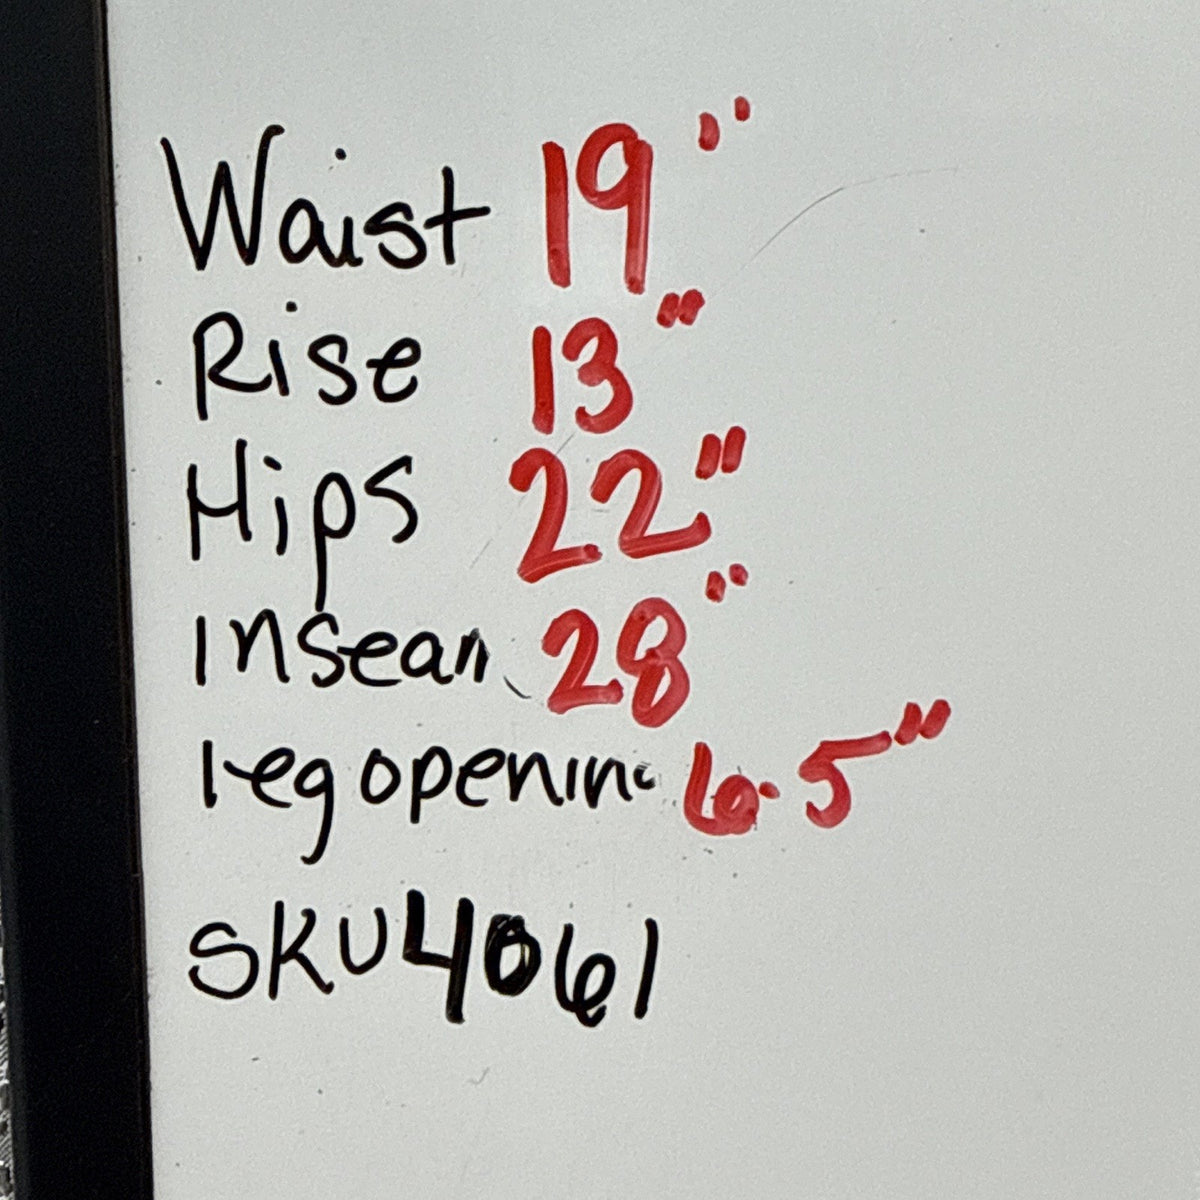 Waist 19"
Rise 13"
Hips 22"
Inseam 28"
Leg opening 6.5"
SKU 4061